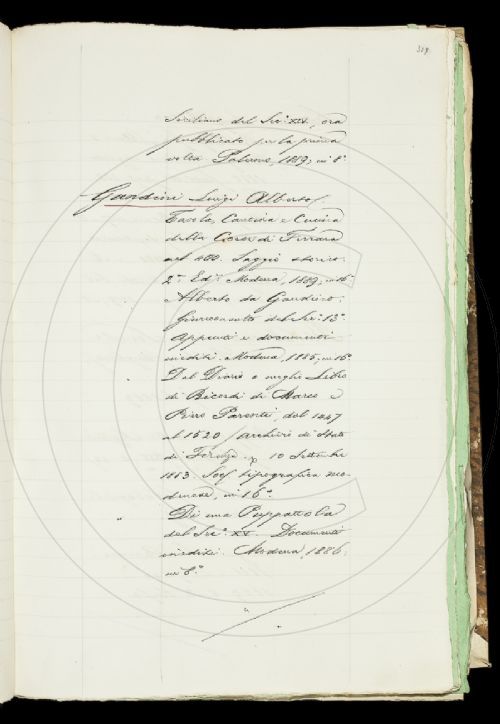 Siciliano del Sec. XIV, ora
pubblicato per la prima
volta Palermo, 1889, in 8°
Gandini Luigi Alberto
Tavola, Cantina e Cucina
della Corte di Ferrara
nel 400. Saggio storico.
2ª Edᵉ. Modena, 1889, in 16°
Alberto da Gandino,
Giureconsulto del Sec. 13°.
Appunti e documenti
inediti. Modena, 1885, in 16°
Dal Diario o meglio Libro
di Ricordi di Marco e
Piero Parenti, del 1447
al 1520 (archivio di Stato
di 10 Settembre
1863. Soc. tipografica mo-
denese, in 16°.
Di una Puppattola
del Sec° XV. Documenti
inediti. Modena, 1886,
in 8°